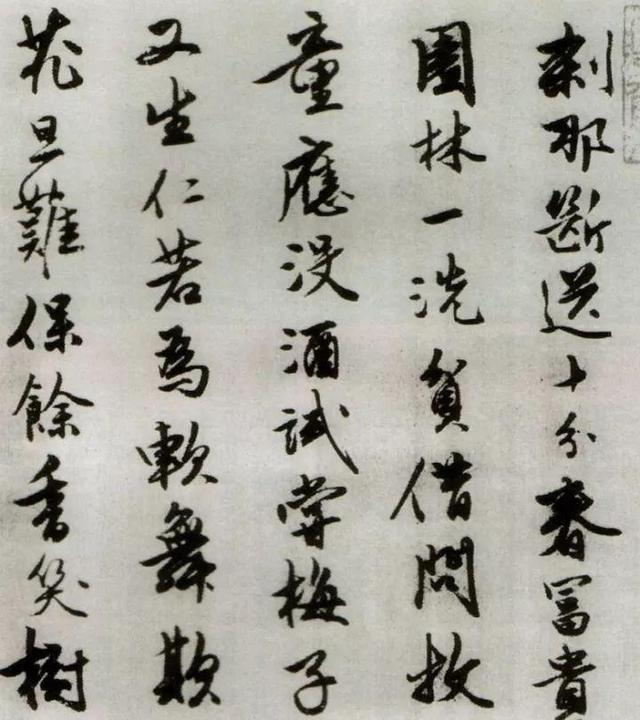 刹那斷送十分春冨貴
園林一洗貧借問牧
童應没酒試嘗梅子
又生仁若為軟舞欺
花旦難保餘香笑樹